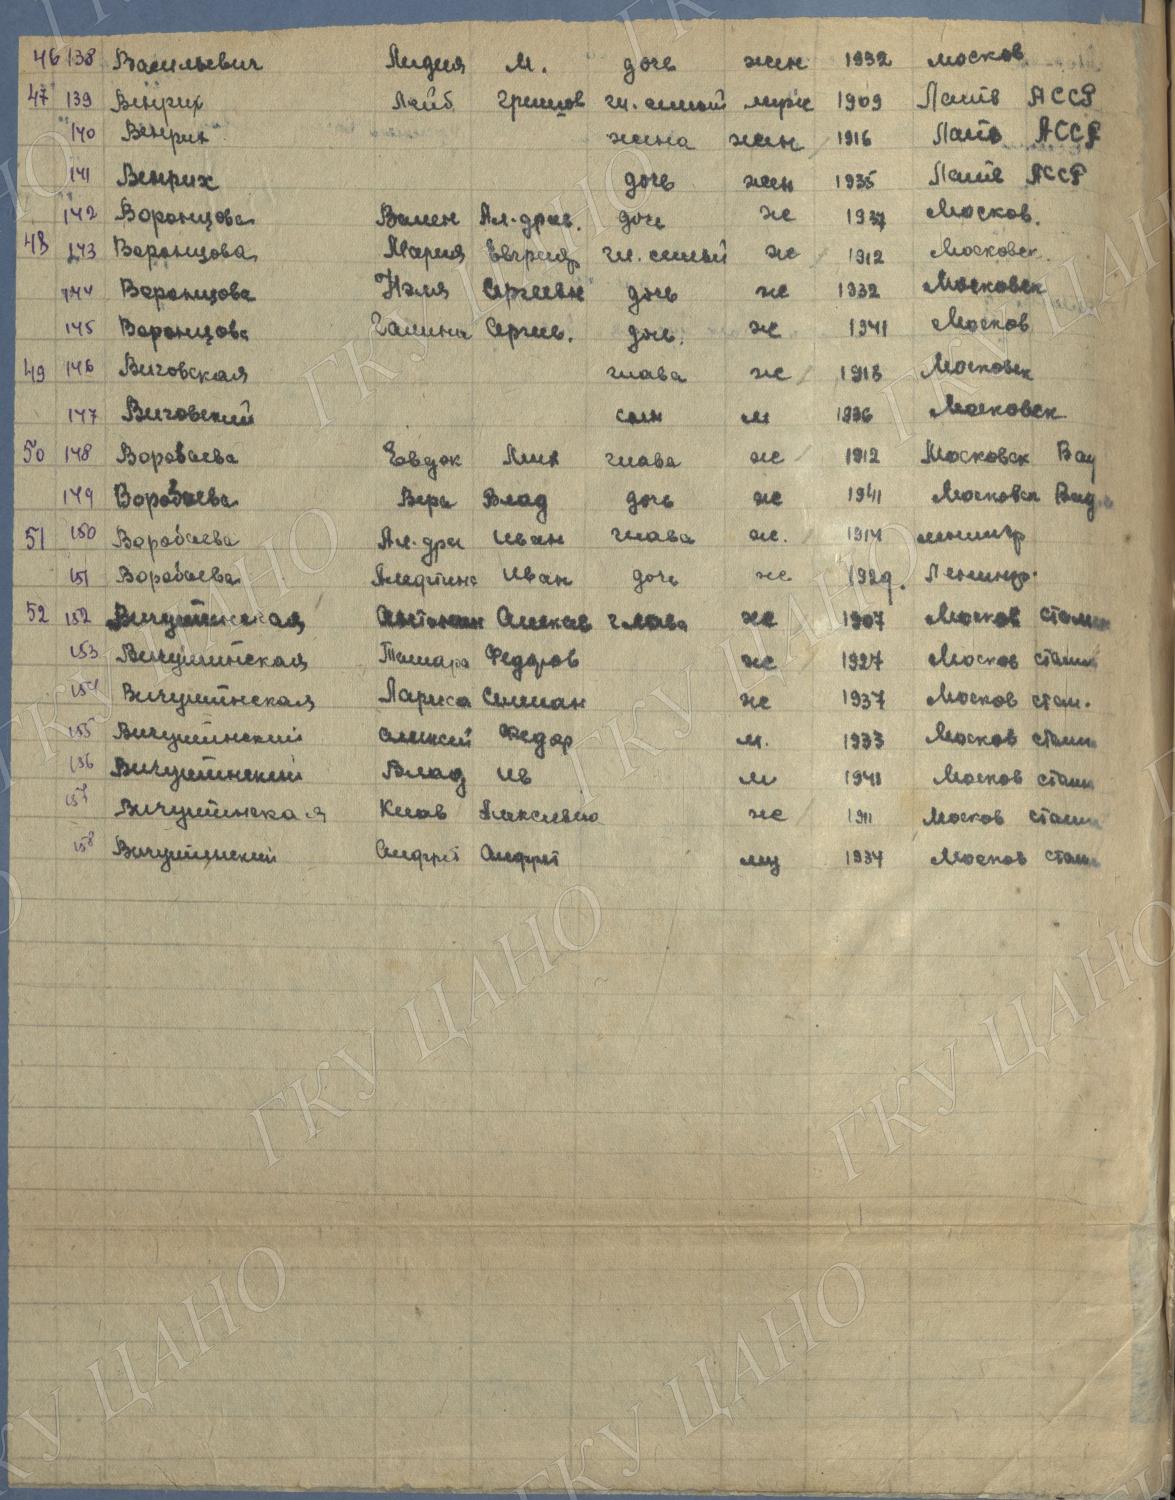 46 138 Васильевич Лидия М. дочь жен 1932 москов
47 139 Венрих Лейб Гришов гл. семьи муж 1909 Латв АССР
140 Венрих жена жен 1916 Латв АССР
141 Венрих дочь жен 1935 Латв АССР
142 Воронцова Вален Ал-дров. дочь ж 1937 Москов.
48 143 Воронцова Мария гл. семьи ж 1912 Московск.
144 Воронцова Нэля Сергеевн дочь ж 1932 Московск
145 Воронцова Галина Сергев. дочь. ж 1941 Москов
49 146 Виговская глава ж 1918 Московск
147 Виговский сын м 1936 Московск
50 148 Воробаева Евдок Мих глава ж 1912 Московск
149 Воробаева Вера Влад дочь ж 1941 Московск
51 150 Воробаева Ал-дра Иван глава ж. 1914 ленингр
151 Воробаева Алефтина Иван дочь ж 1929. Ленингр.
52 152 Вичуштинская Антонин Алексев глава ж 1907 Москов сталин
153 Вичуштинская Тамара Федоров ж 1927 Москов сталин
154 Вичуштинская Лариса Семман ж 1937 Москов стал.
155 Вичуштинский алексей Федор м. 1933 Москов сталин
156 Вичуштинский Влад Ив м 1941 Москов сталин
157 Вичуштинская Клав Алексевна ж 1911 Москов сталин
158 Вичуштинский Андрей Андрей муж 1934 Москов сталин
ГКУ ЦАНО